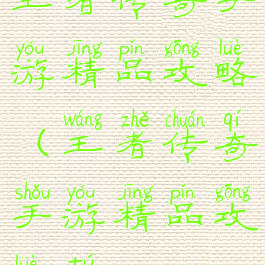 王者传奇手
yóu jīng pǐn gōng lüè
游精品攻略
wáng zhě chuán qí
（王者传奇
shǒu yóu jīng pǐn gōng
手游精品攻
lüè tú